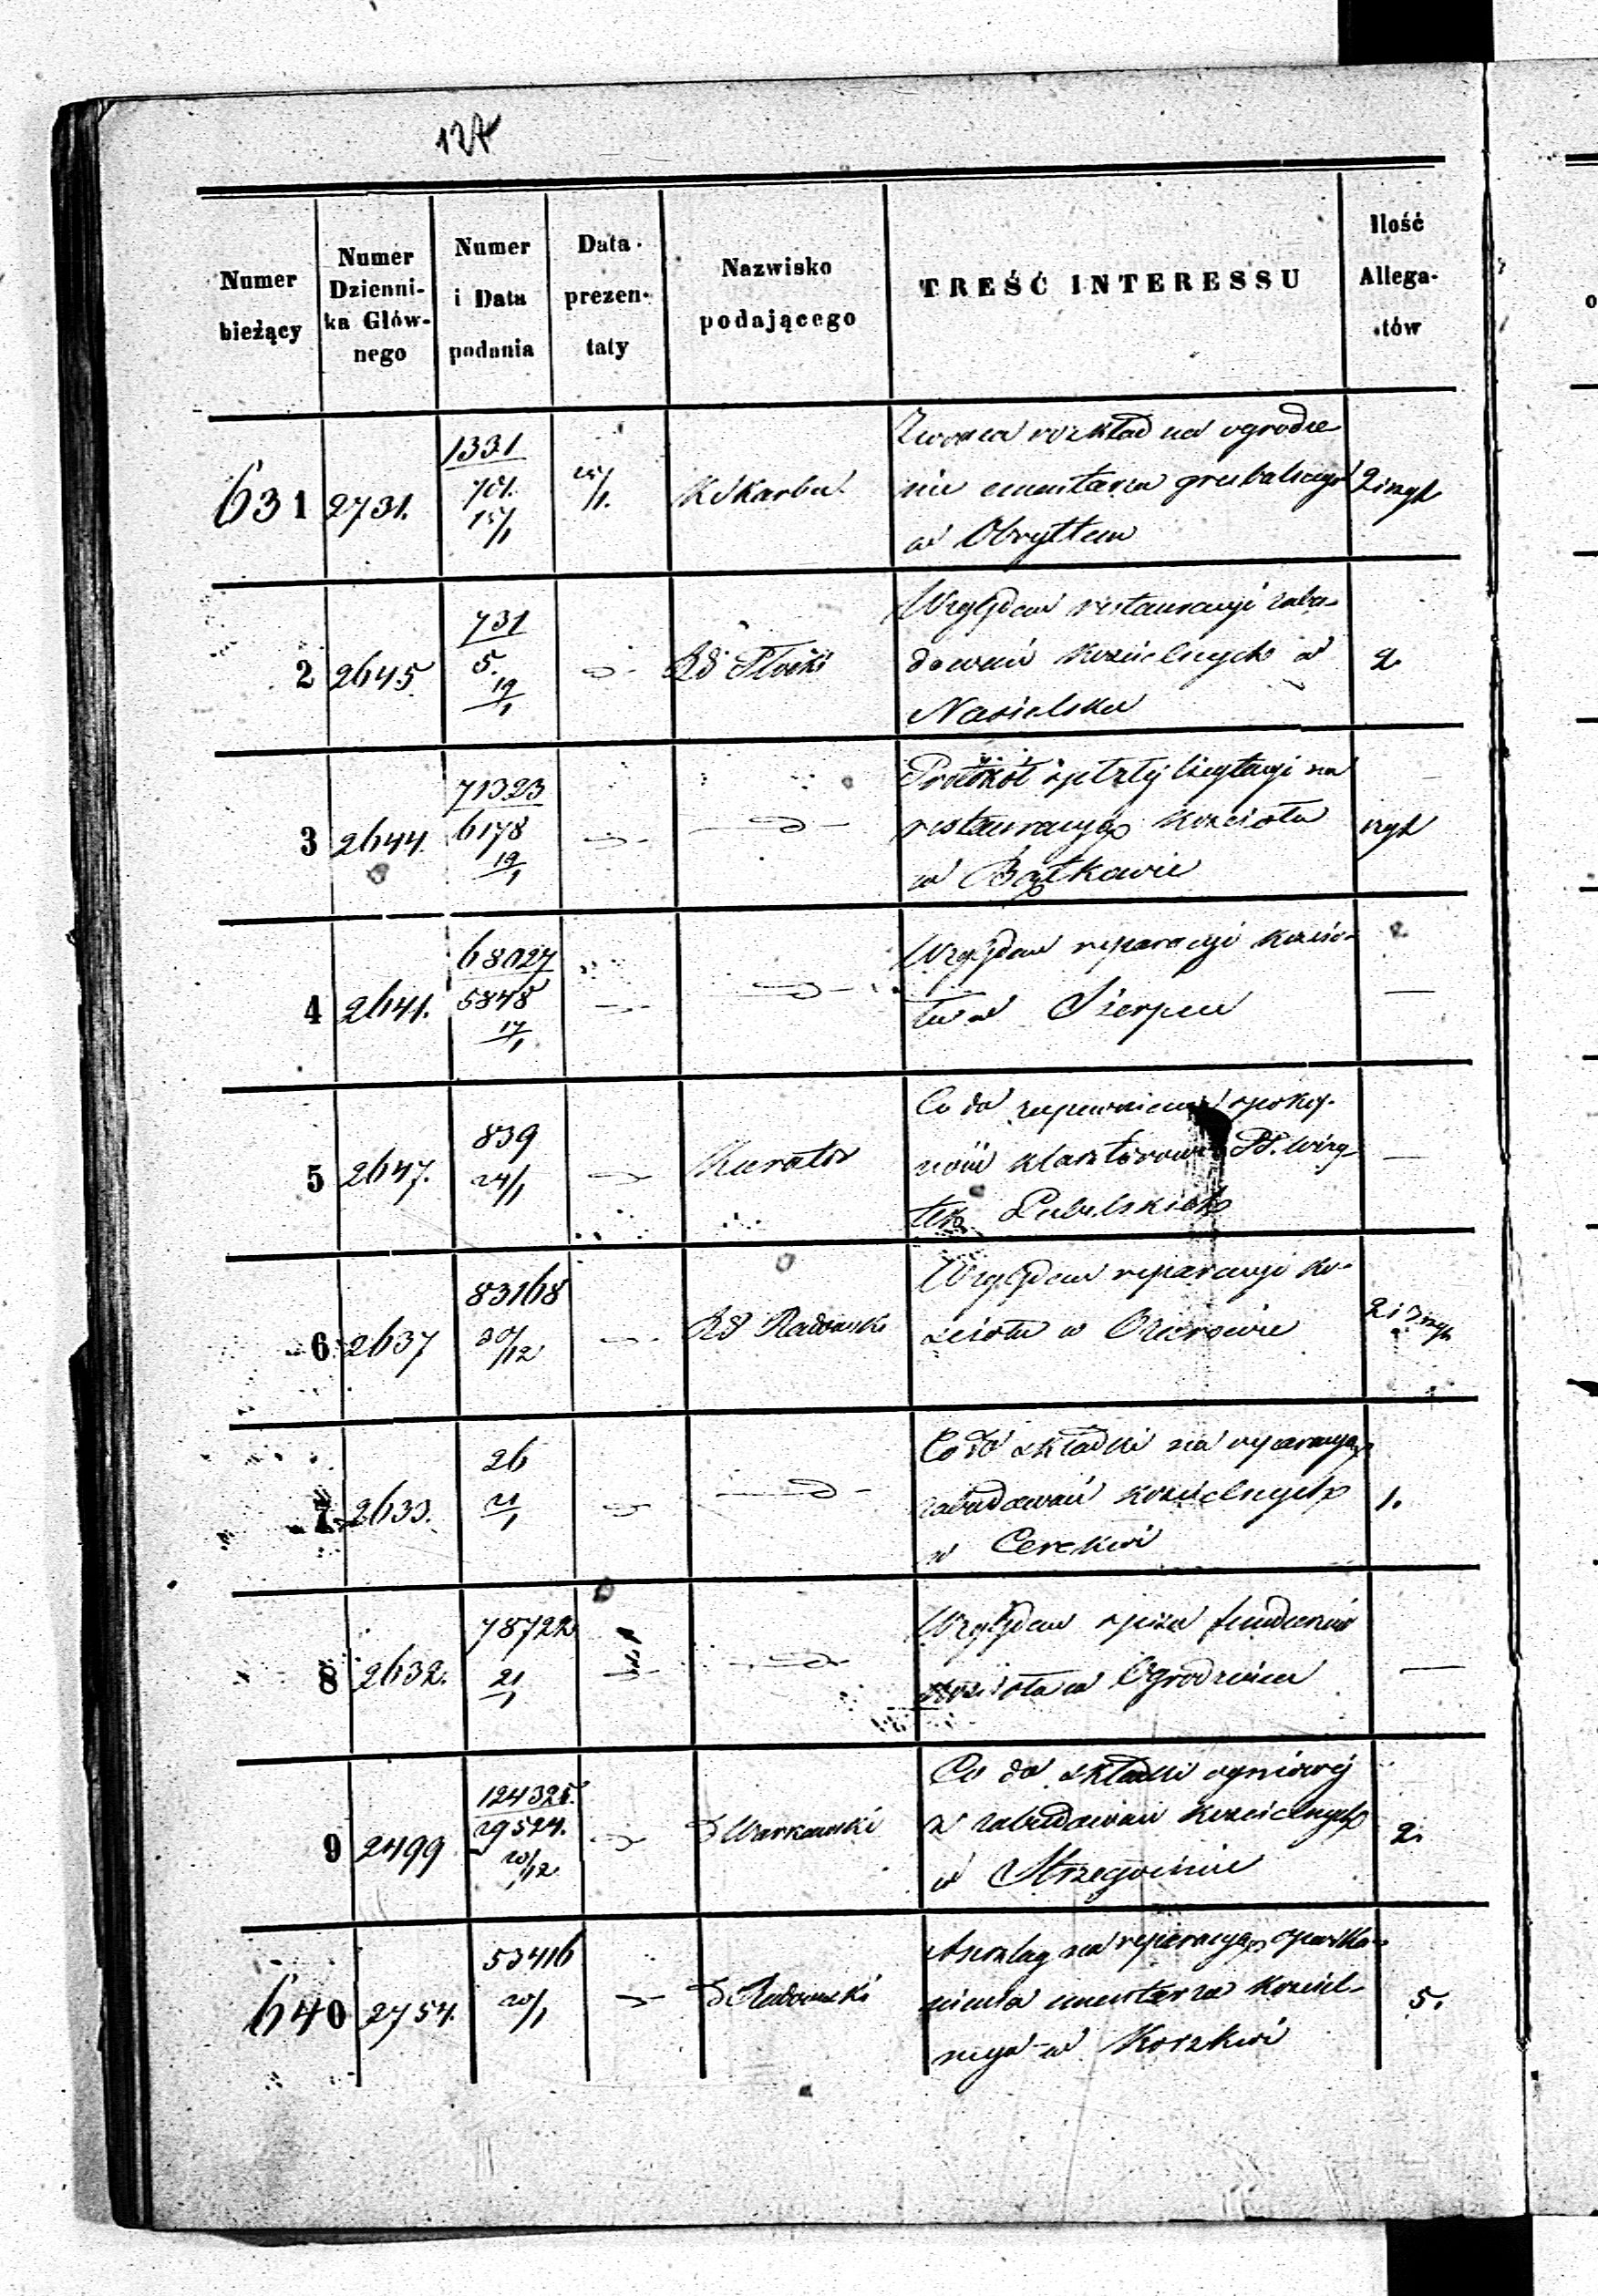 127
Numer bieżący
Numer Dzienni-ka Głów-nego
Numer i Data podania
Data prezen-taty
Nazwisko podającego
TREŚĆ INTERESSU
Ilość Allega-tów
631 2731. 1331 15/1 25/1. Zwraca rozkład na ogrodze
nie cmentarza grzebalnego
w Obryttem
2 2645 731 5. 19/1 Rd Płocki Względem restauracyi zabu-
dowań kościelnych w 2
Nasielsku
3 2644. 71323 6178 19/1 Protokół licytacyi na
restauracyą kościoła
w Bątkowie
4 2641. 68027 5848 17/1 Względem reparacyi kościo-
ła w Sierpcu —
5 2647. 839 24/1 Kurator Co do zapewnienia spokoj-
klasztorowi PP. Wizy-
tek Lubelskich —
6 2637 83168 30/12 Rd Radomski Względem reparacyi ko-
ścioła w Ożarowie
7 2633. 26 21/1 Co do składki na reparacyą
zabudowań kościelnych 1.
w Cerekwi
8 2632. 78722 21/1 Względem
kościoła w Ogrodzieńcu —
9 2499 124325 29524. 20/12 Warszawski Co do składki ogniowej
z zabudowań kościelnych 2.
w Strzegocinie
640 2754. 53416 20/1 Radomski Anszlag na reparacyą oparka-
nienia cmentarza kościel- 5.
nego w Korzkwi